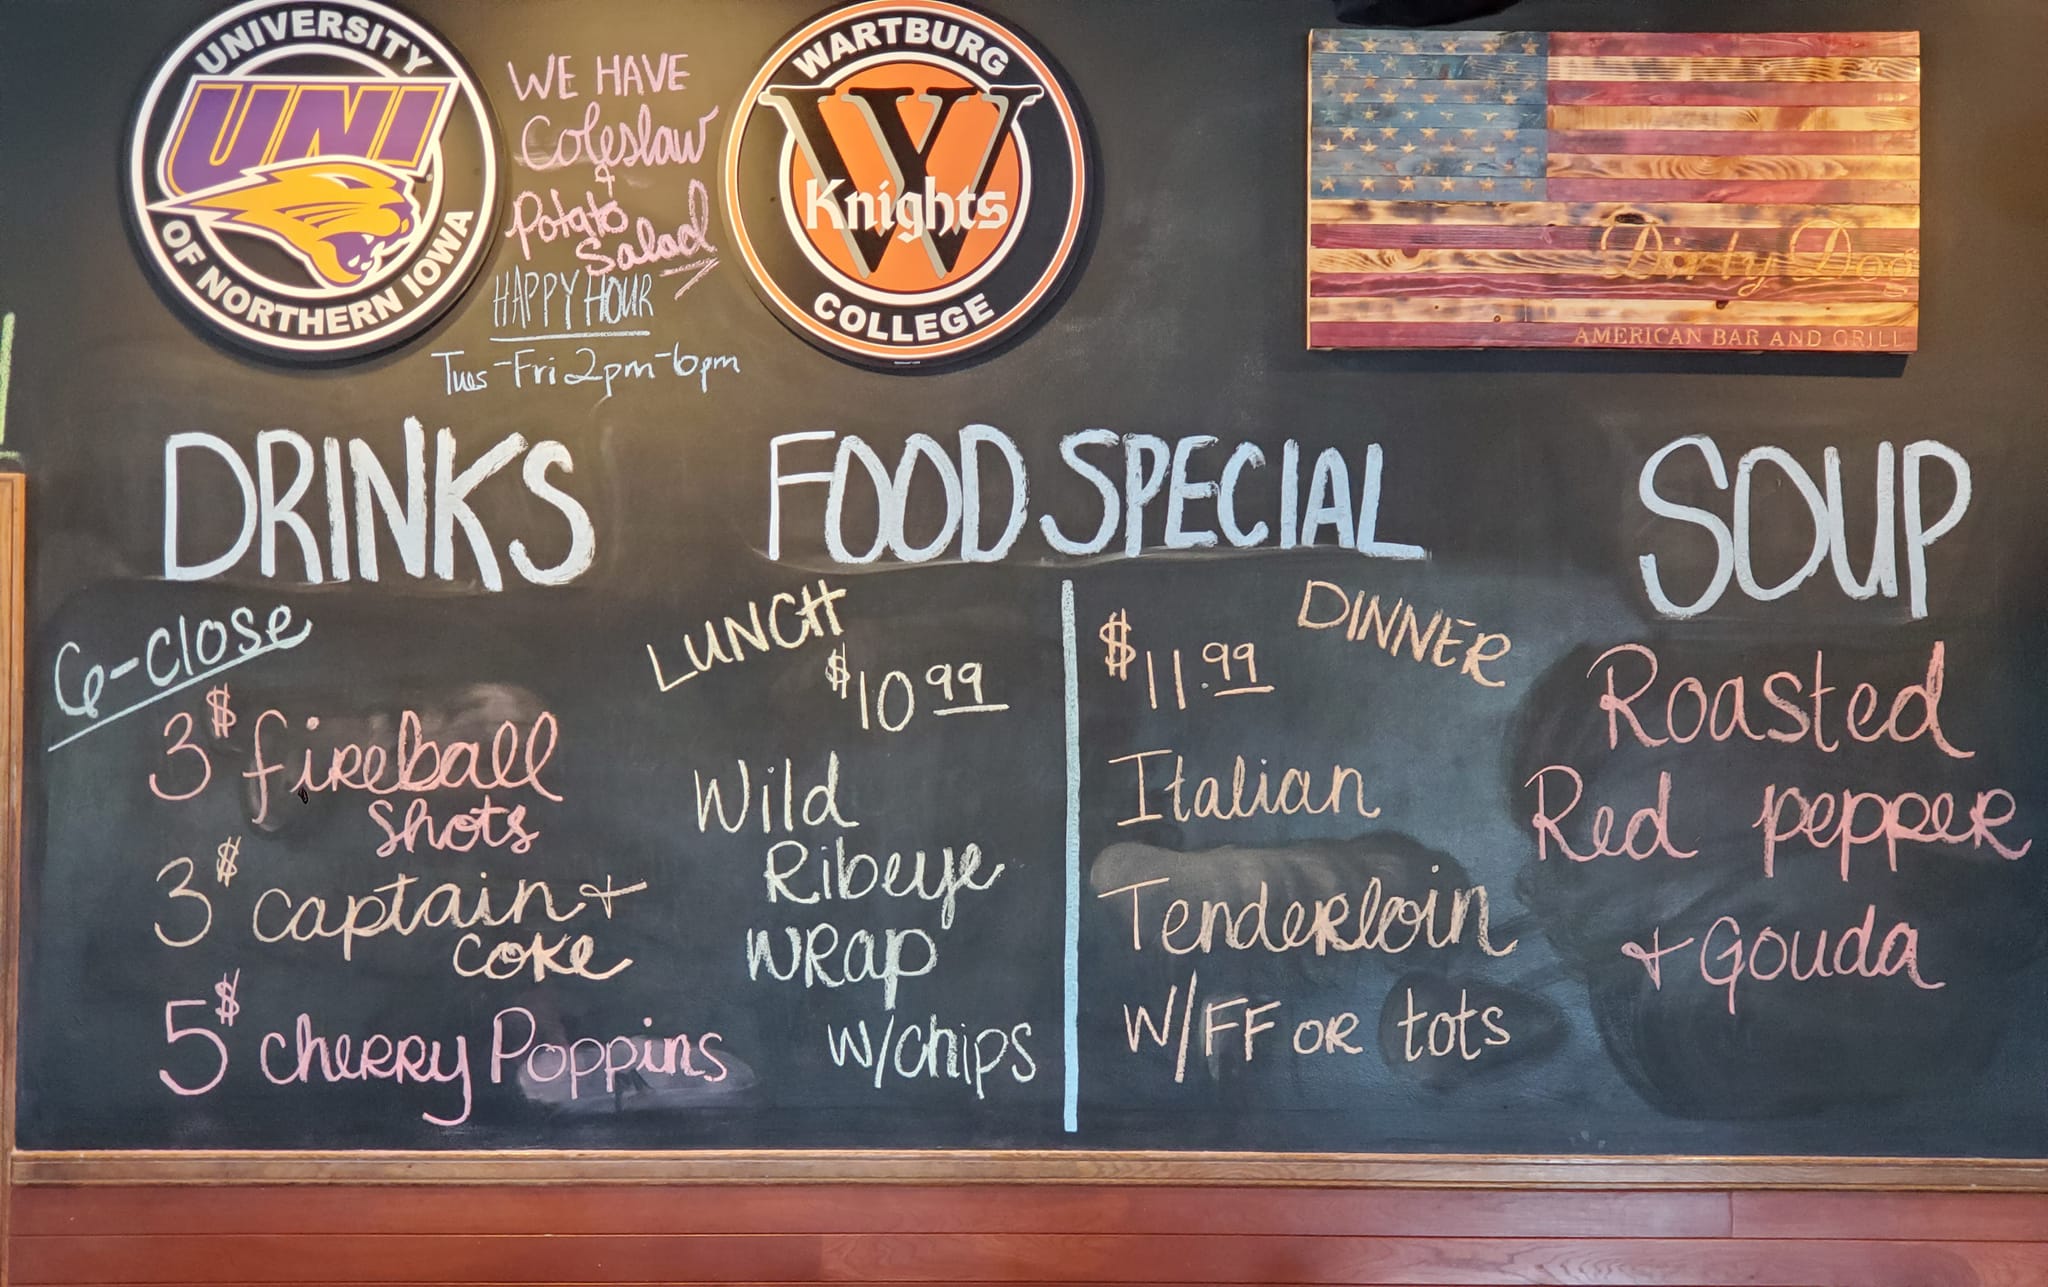 UNIVERSITY
UNI
OF NORTHERN IOWA
WE HAVE
Coleslaw
+
Potato
Salad
HAPPY HOUR
Tues-Fri 2pm-6pm
WARTBURG
W
Knights
COLLEGE
Dirty Dog
AMERICAN BAR AND GRILL
DRINKS
6-Close
3$ fireball
shots
3$ captain +
coke
5$ cherry Poppins
FOOD SPECIAL
LUNCH
$10.99
Wild
Ribeye
WRap
w/chips
DINNER
$11.99
Italian
Tenderloin
W/FF OR tots
SOUP
Roasted
Red pepper
+ Gouda